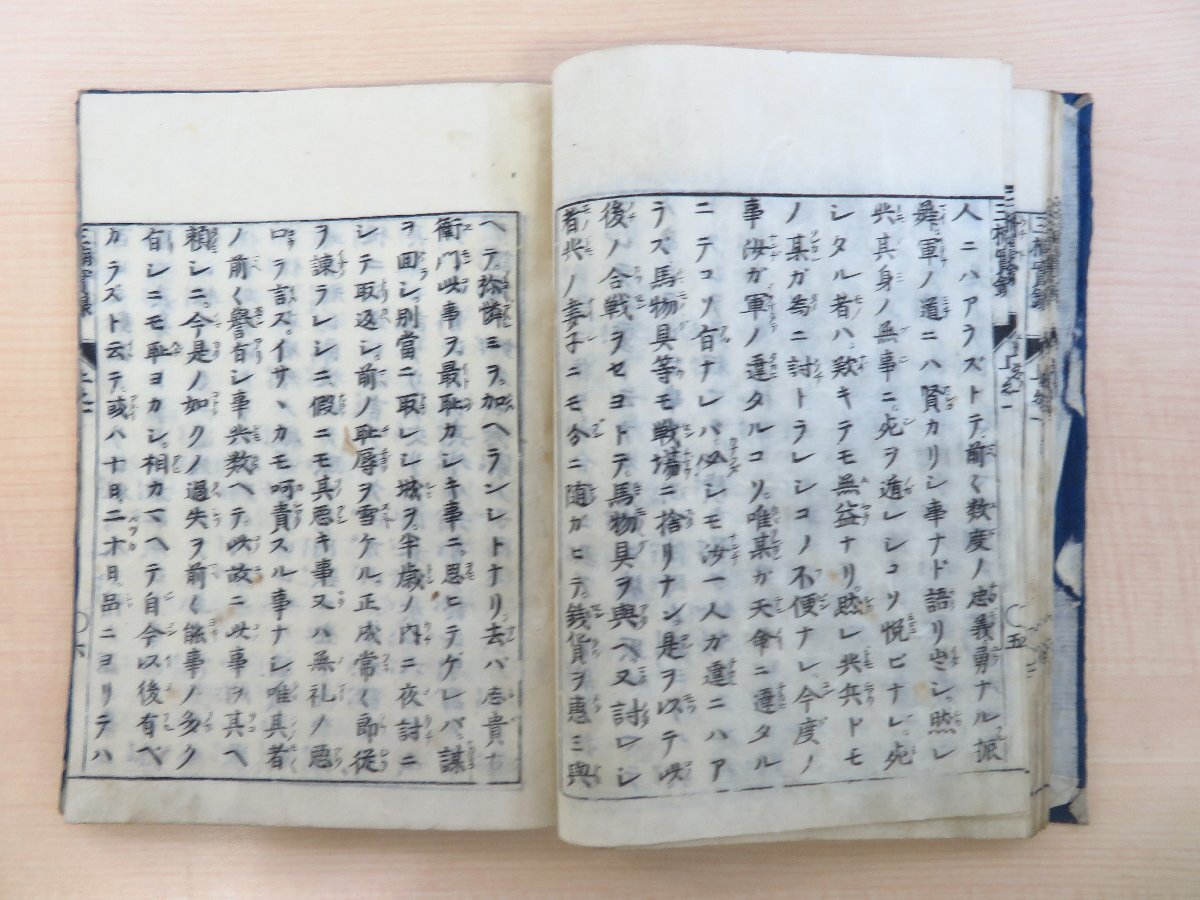 人ニハアラズトテ前〱数度ノ忠義勇ナル振
舞軍ノ道ニハ賢カリシ事ナド語リ出シ然レ
共其身ノ無事ニ死ヲ遁レシコソ悦ビナレ死
シタル者ハ歎キテモ無益ナリ然レ共兵ドモ
ノ某ガ為ニ討トラレシコソ不便ナレ今度ノ
事汝ガ軍ノ違タルコソ唯某ガ天命ニ違タル
ニテコソ有ナレバ必シモ汝一人ガ違ニハア
ラズ馬物具等モ戦場ニ捨リナン是ヲ以テ此
後ノ合戦ヲセヨトテ馬物具ヲ與ヘ又討レシ
者共ノ妻子ニモ今ニ随ガヒテ銭貨ヲ恵ミ與
ヘテ弥憐ミヲ加ヘランレトナリ去バ志貴右
衛門此事ヲ最耻カシキ事ニ思ヒテゲレバ謀
ヲ回シ別當ニ取レシ城ヲ半歳ノ内ニ夜討ニ
シテ取返シ前ノ耻辱ヲ雪ケル正成常〱郎従
ヲ諫ラレシニ假ニモ其悪キ事又ハ無礼ノ悪
口ヲ言ズイサヽカモ呵責スル事ナシ唯其者
ノ前〱譽有シ事共数ヘテ此故ニ此事ヲ其ヘ
頼シニ今是ノ如クノ過失ヲ前〱能事ノ多ク
有シニモ耻ヨカシ相カマヘテ自今以後有ベ
カラズト云テ或ハ十日二十日品ニヨリテハ